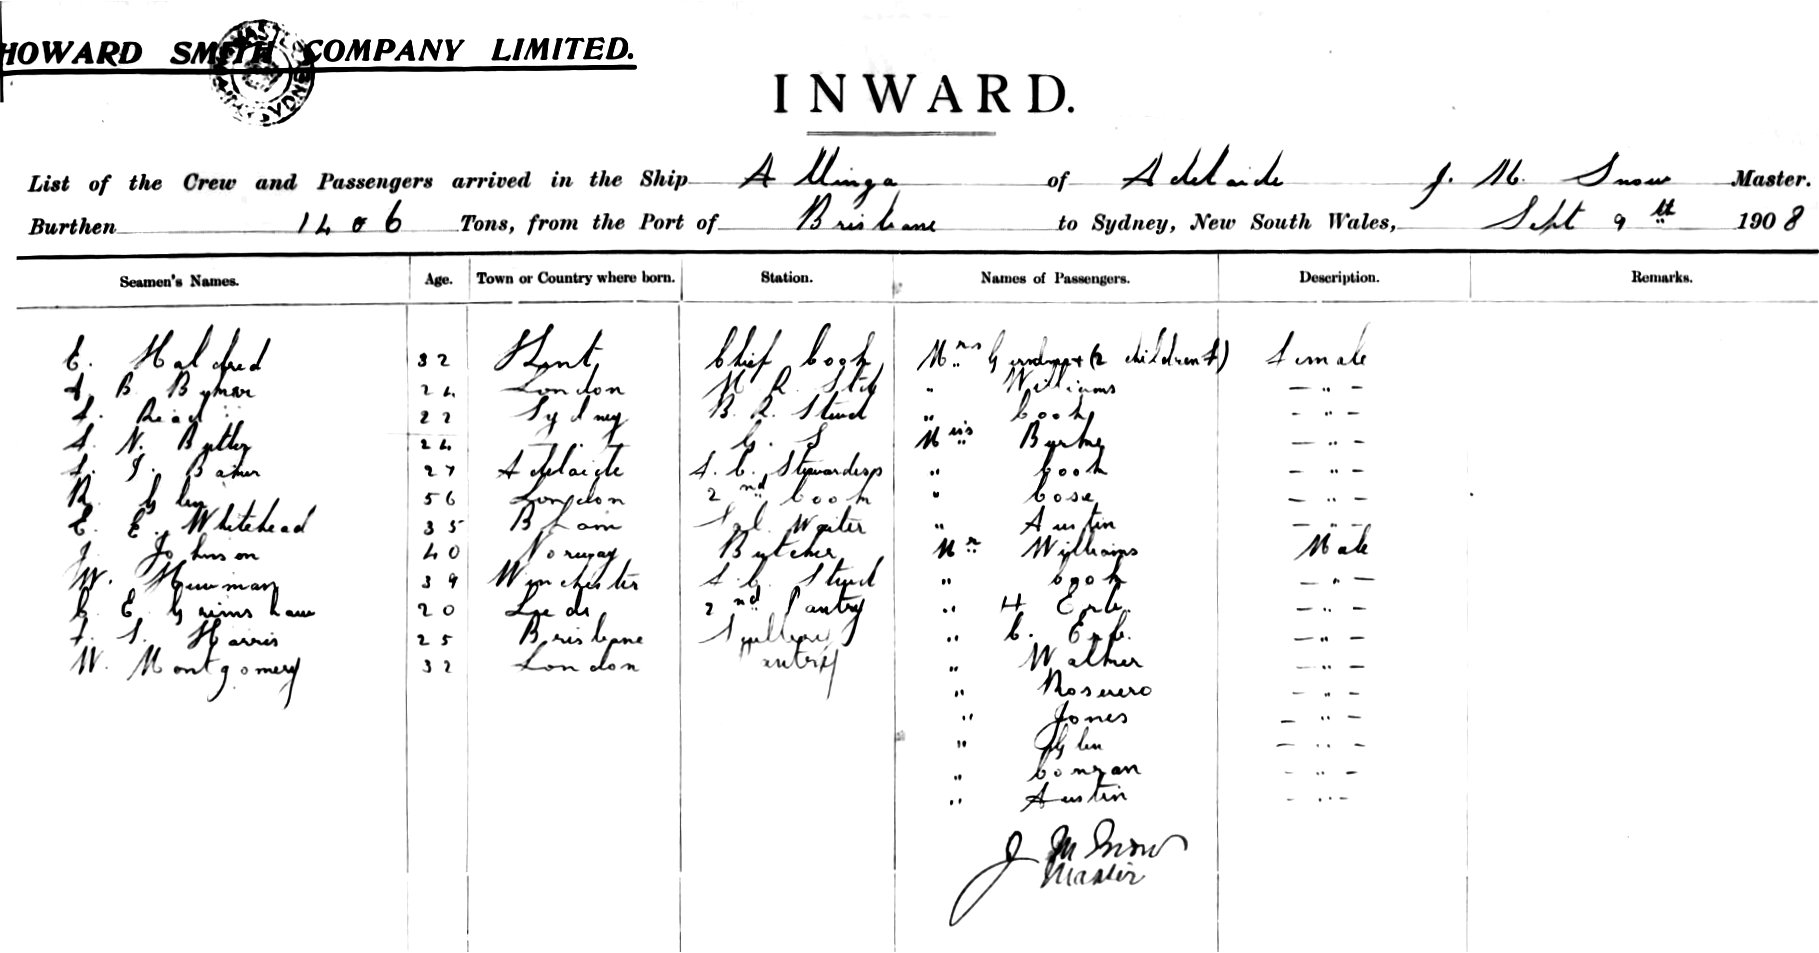 HOWARD SMITH COMPANY LIMITED.
INWARD.
List of the Crew and Passengers arrived in the Ship Allinga of Adelaide J. M. Snow Master.
Burthen 1406 Tons, from the Port of Brisbane to Sydney, New South Wales, Sept 9th 1908
Seamen's Names. Age. Town or Country where born. Station. Names of Passengers. Description. Remarks.
E. Haldred 32 Chief Cook Mrs (2 children) Female
B. 24 London M. R. " Williams — " —
Read 22 Sydney B. R. Stwd " Cook — " —
N. Butler 24 " G. S Miss Burke — " —
J. Baker 27 Adelaide Stewardess " Cook — " —
R. Glen 56 London 2nd Cook " Cose — " —
E. E. Whitehead 35 B'ham Waiter " Austin — " —
J. Johnson 40 Norway Butcher Mr Williams Male
W. Newman 39 Winchester Stwd " Cook — " —
C. E. Grimshaw 20 Leeds 2nd Pantry " H Erb. — " —
Harris 25 Brisbane " C. Erb. — " —
W. Montgomery 32 London Pantry " Walker — " —
" — " —
" Jones — " —
" Glen — " —
" Conran — " —
" Austin — " —
J M Snow
Master